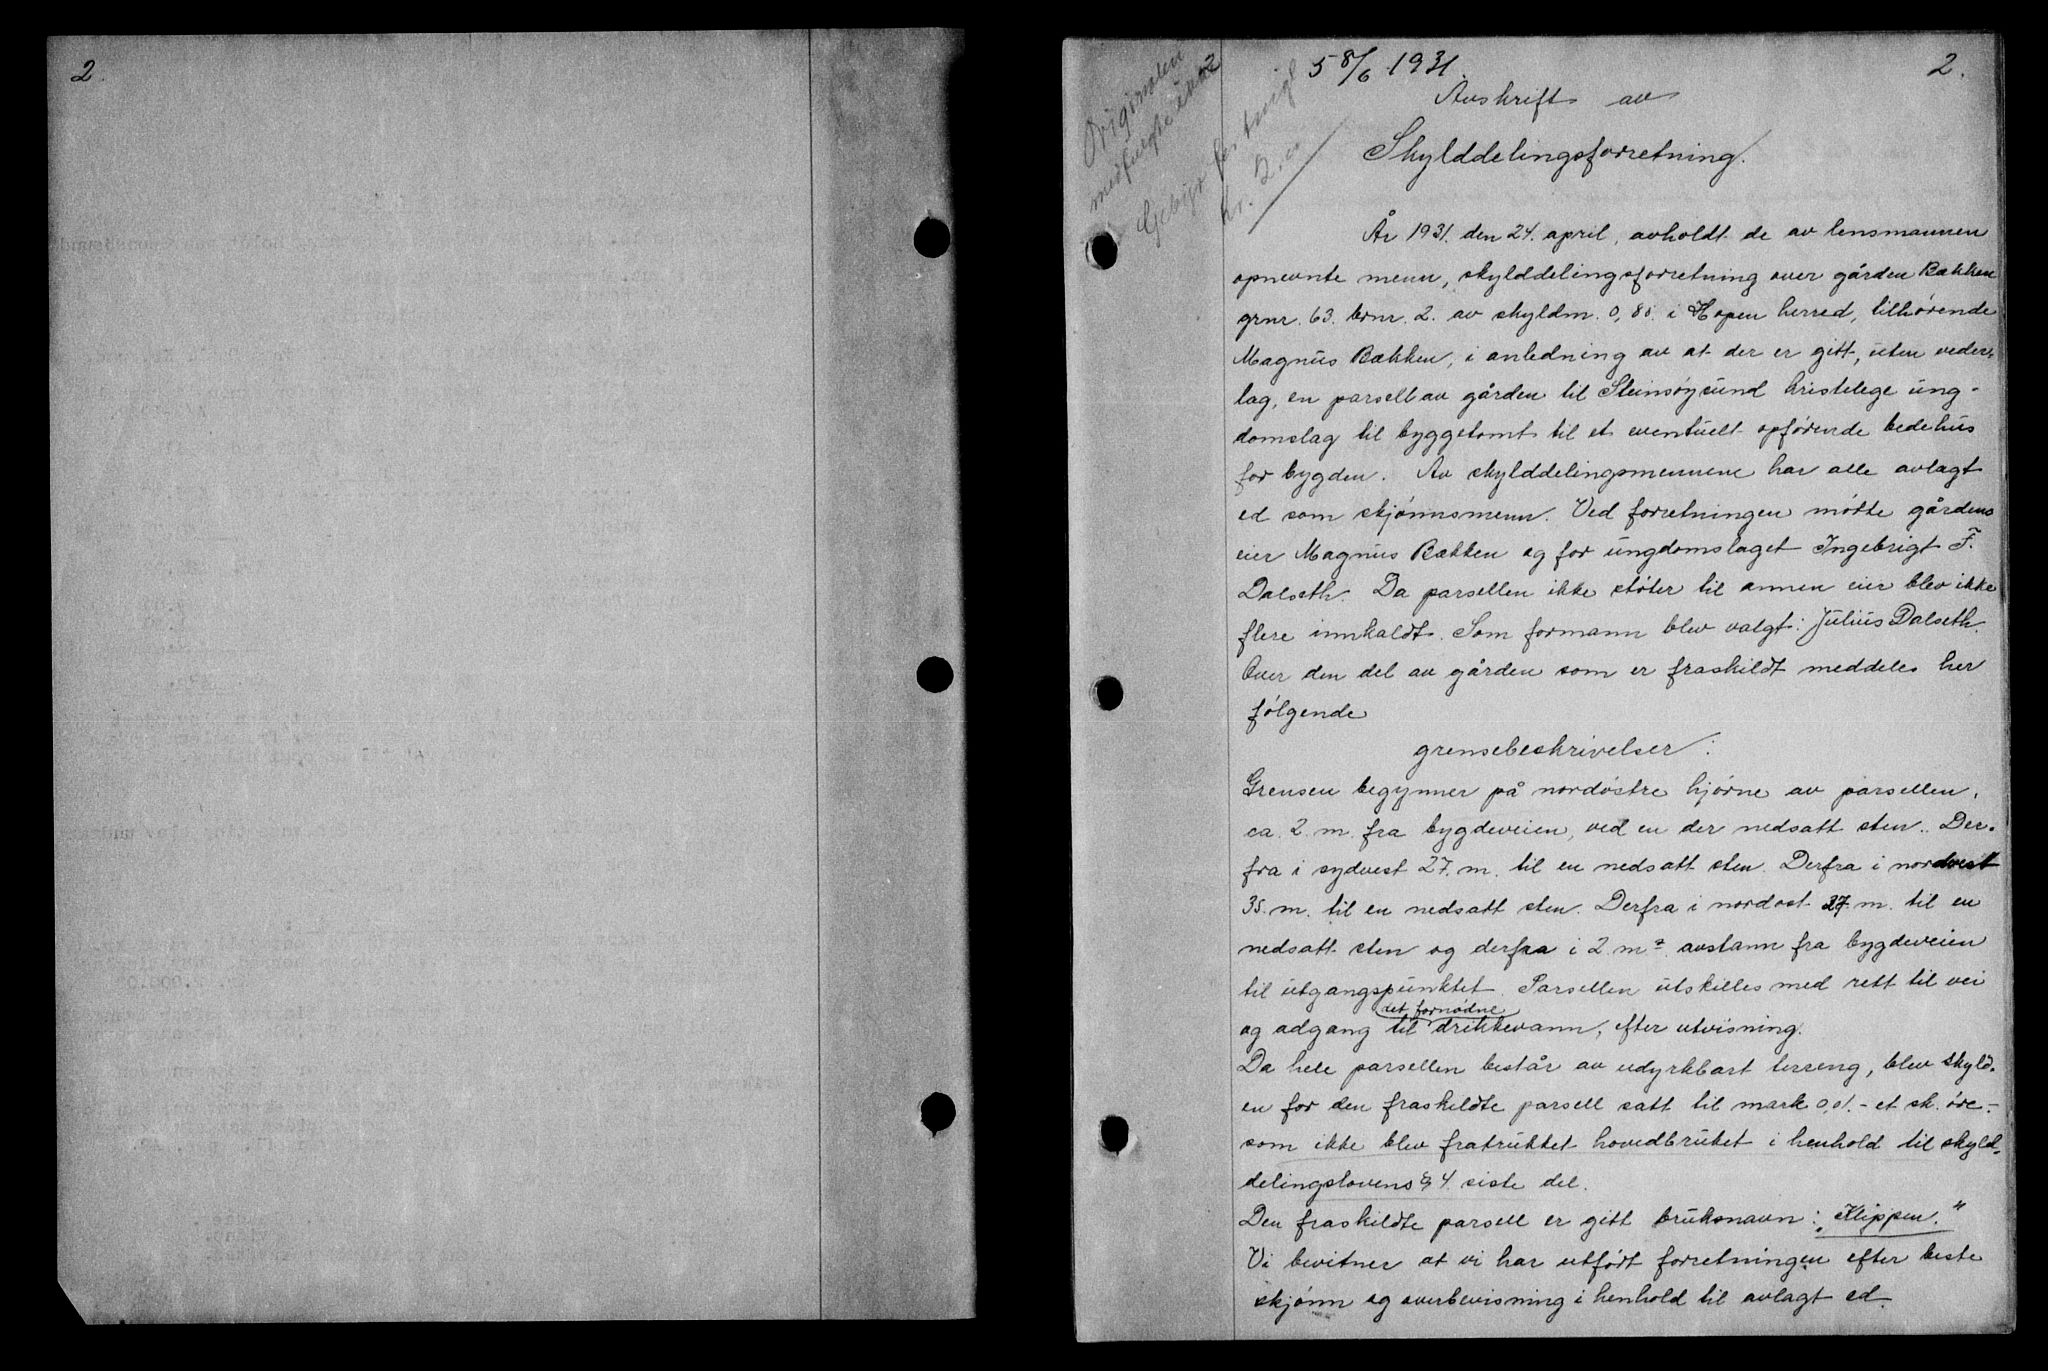 2.
5 8/6 1931.
2.
Originalen
Gebyr for tingl
kr. 2.00
Avskrift av
Skylddelingsforretning.
År 1931. den 24. april, avholdt de av lensmannen
opnevnte menn, skylddelingsforretning over gården Bækken
grnr. 63. brnr. 2. av skyldm. 0,80. i Hopen herred, tilhørende
Magnus Bækken, i anledning av at der er gitt, uten veder-
lag, en parsell av gården til Steinsøysund kristelege ung-
domslag til byggetomt til et eventuelt opførende bedehus
for bygden. Av skylddelingsmennene har alle avlagt
ed som skjønnsmenn. Ved forretningen møtte gårdens
eier Magnus Bækken og for ungdomslaget Ingebrigt F.
Dalseth. Da parsellen ikke støter til annen eier blev ikke
flere innkaldt. Som formann blev valgt: Julius Dalseth.
Over den del av gården som er fraskildt meddeles her
følgende
grensebeskrivelser:
Grensen begynner på nordøstre hjørne av parsellen,
ca. 2. m. fra bygdeveien, ved en der nedsatt sten. Der-
fra i sydvest 27. m. til en nedsatt sten. Derfra i nordvest
35. m. til en nedsatt sten. Derfra i nordost 27 m. til en
nedsatt sten og derfra i 2 m. avstann fra bygdeveien
til utgangspunktet. Parsellen utskilles med rett til vei
det fornødne
og adgang til drikkevann, efter utvisning.
Da hele parsellen består av udyrkbart terreng, blev skyld-
en for den fraskildte parsell satt til mark 0,01. - et sk. øre.-
som ikke blev fratrukket hovedbruket i henhold til skyld-
delingslovens § 4. siste del.
Den fraskildte parsell er gitt bruksnavn: „Klippen."
Vi bevitner at vi har utført forretningen efter beste
skjønn og overbevisning i henhold til avlagt ed.